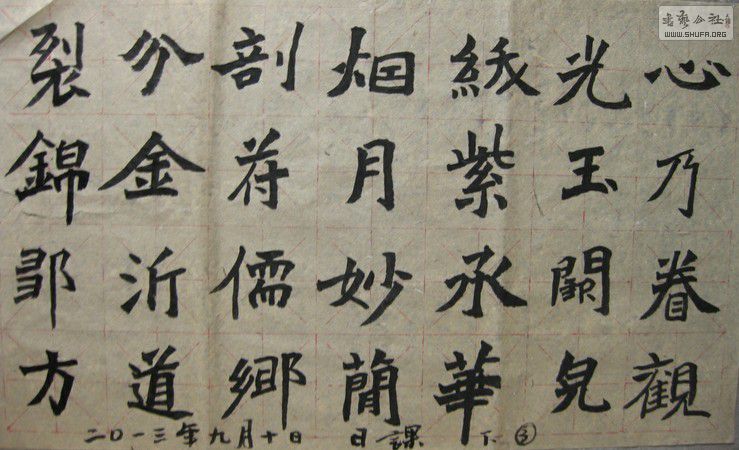 心乃眷觀
光玉闕皃
紱紫承華
烟月妙簡
剖苻儒鄉
分金沂道
裂錦鄒方
二〇一三年九月十日 日課 下③
書藝公社
WWW.SHUFA.ORG